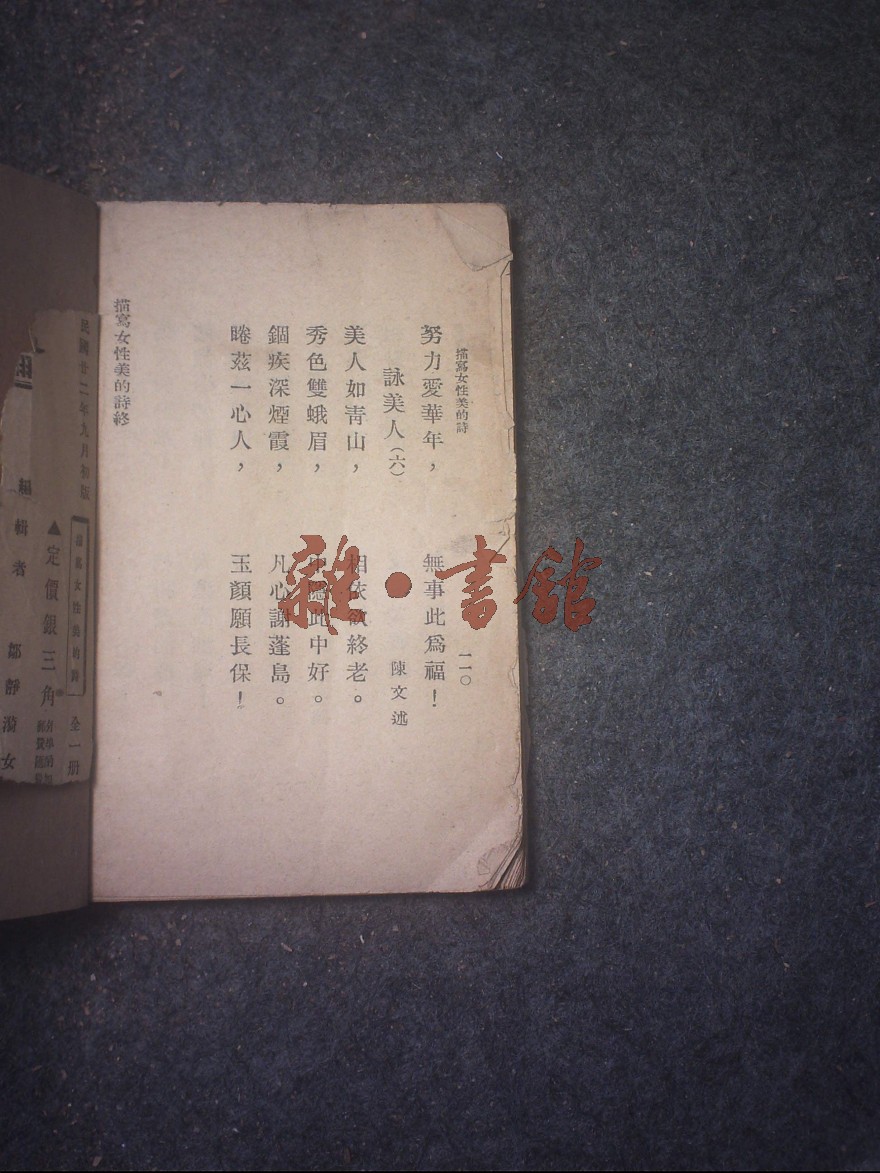 描寫女性美的詩
一一〇
努力愛華年，無事此爲福！
詠美人（六）　陳文述
美人如靑山，相依欲終老。
秀色雙蛾眉，中隱此中好。
錮疾深煙霞，凡心謝蓬島。
睠茲一心人，玉顏願長保！
描寫女性美的詩終
民國廿二年九月初版
描寫女性美的詩 全一册
▲定價銀三角
編輯者 靜漪女
雜·書館